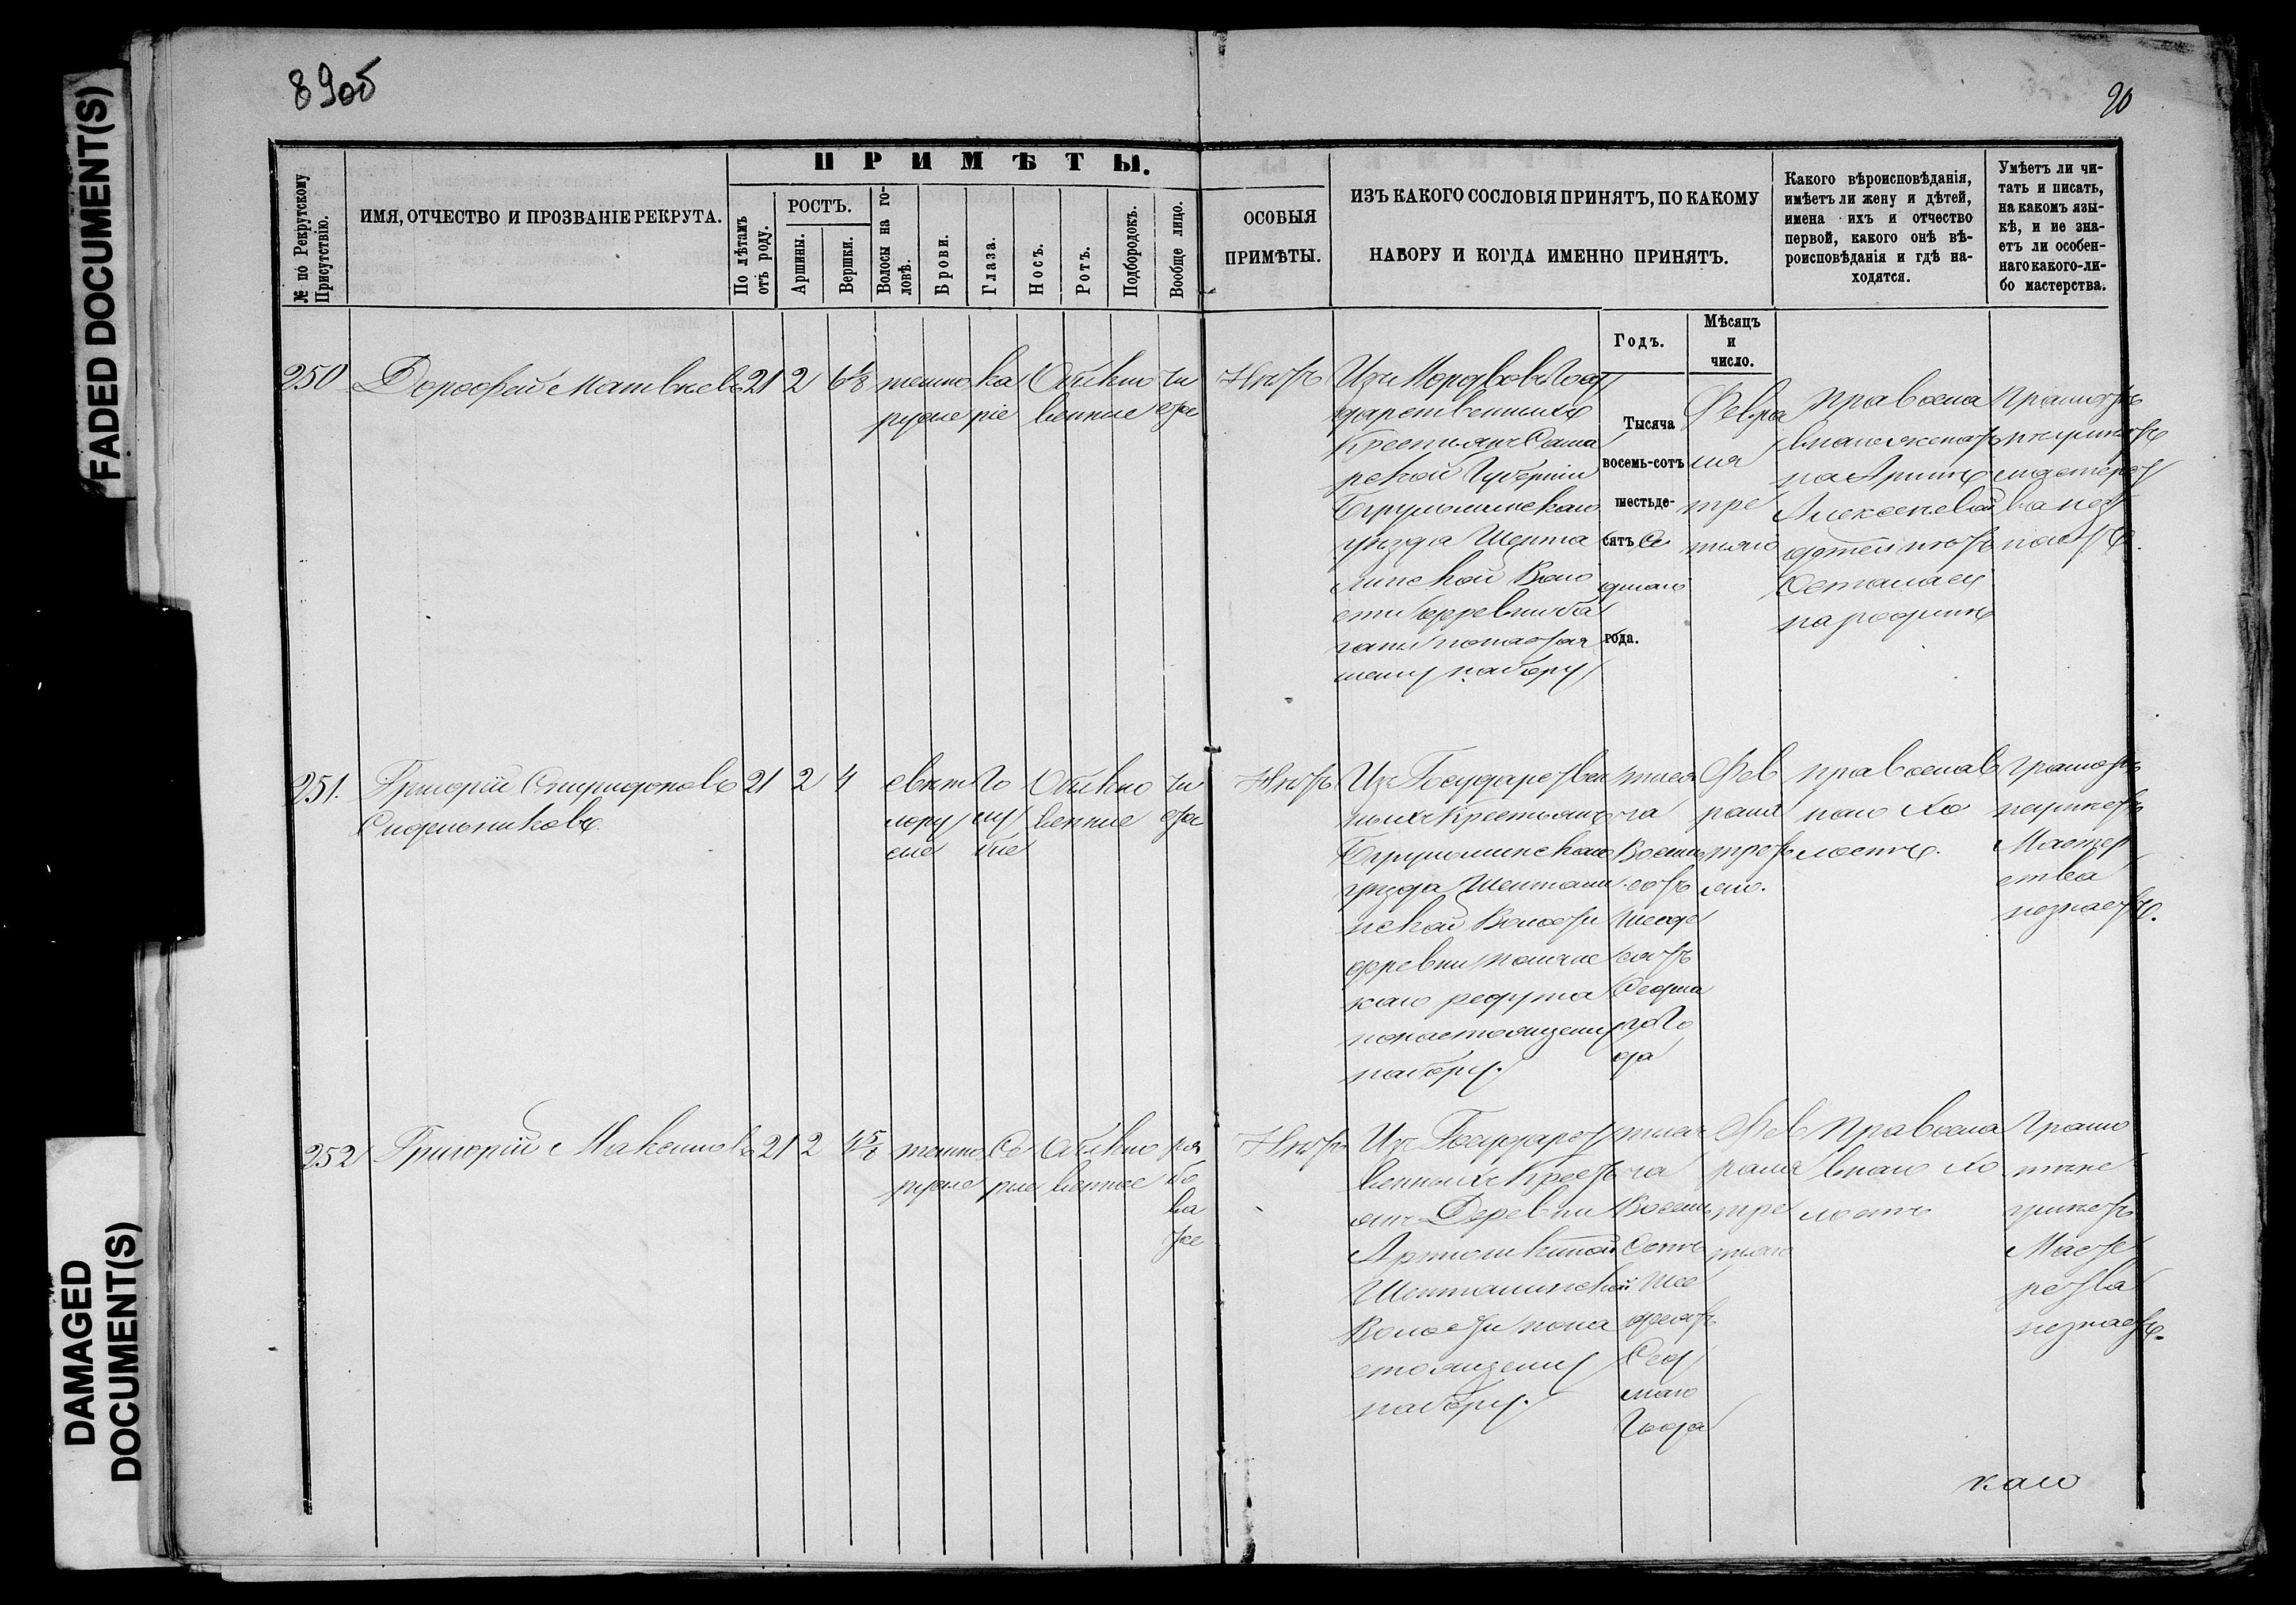 FADED DOCUMENT(S)
DAMAGED
DOCUMENT(S)
89об
90
ПРИМѢТЫ.
№ по Рекрутскому
Присутствію.
ИМЯ, ОТЧЕСТВО И ПРОЗВАНІЕ РЕКРУТА.
По лѣтамъ
отъ роду.
РОСТЪ.
Аршины.
Вершки.
Волосы на го-
ловѣ.
Брови.
Глаза.
Носъ.
Ротъ.
Подбородокъ.
Вообще лицо.
ОСОБЫЯ
ПРИМѢТЫ.
ИЗЪ КАКОГО СОСЛОВІЯ ПРИНЯТЪ, ПО КАКОМУ
НАБОРУ И КОГДА ИМЕННО ПРИНЯТЪ.
Какого вѣроисповѣданія,
имѣетъ ли жену и дѣтей,
имена ихъ и отчество
первой, какого онѣ вѣ-
роисповѣданія и гдѣ на-
ходятся.
Умѣетъ ли чи-
тать и писать,
на какомъ язы-
кѣ, и не зна-
етъ ли особен-
наго какого-ли-
бо мастерства.
Годъ.
Мѣсяцъ
и
число.
250
Дорофей Матвѣевъ
21
2
6 1/8
темно
русые
ка
ріе
Обыкно
венные
чи
стое
Нѣтъ
Изъ Мордвовъ Госу
дарственныхъ
Крестьянъ Сама
рской Губерніи
Бугульминскаго
уѣзда Шента
линской Воло
сти деревни Ба
ганы по настоя
щему набору
Тысяча
восемь-сотъ
шестьде-
сятъ Се
дмаго
года.
Февра
ля
тре
тьяго
Правосла
внаго женатъ
на Аринѣ
Алексѣевой
дѣтей нѣтъ
Осталась
на родинѣ
Грамотѣ
неумѣетъ
мастерст
ва нез
наетъ.
251.
Григорій Спиридоновъ
Сидельниковъ
21
2
4
свѣт
лору
сые
го
лу
бые
Обыкно
венные
чи
стое
Нѣтъ
Изъ Государствен
ныхъ Крестьянъ
Бугульминскаго
уѣзда Шентали
нской Волости
деревни
каго редута
по настоящему
набору.
тыся
ча
Восемь
сотъ
Шесде
сятъ
Седма
го Го
да
Фев
раля
треть
яго.
Православ
наго Хо
лостъ.
Грамотѣ
неумѣетъ
Мастер
ства
незнаетъ.
252
Григорій Максимовъ
21
2
4 5/8
темно
русые
Сѣ
рые
Обыкно
венные
ря
бо
ва
тое
Нѣтъ
Изъ Государст
венныхъ Кресть
янъ Деревни
Шенталинской
Волости пона
стоящему
набору.
тыся
ча
Восемь
Сотъ
Шес
десятъ
Сед
маго
Года
Фев
раля
тре
тьяго
Правосла
внаго Хо
лостъ
Грамо
тѣ не
умѣетъ
Масте
рства
незнаетъ.
каго